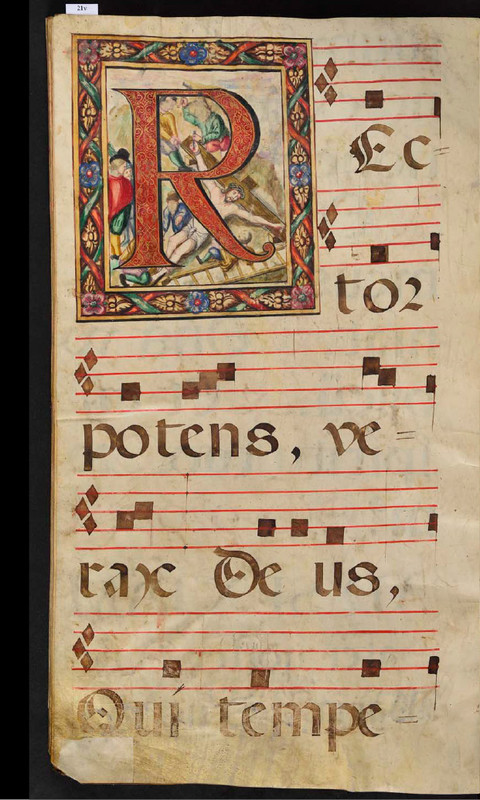 21v
REc=
tor
potens, ve=
rax De us,
Qui tempe=